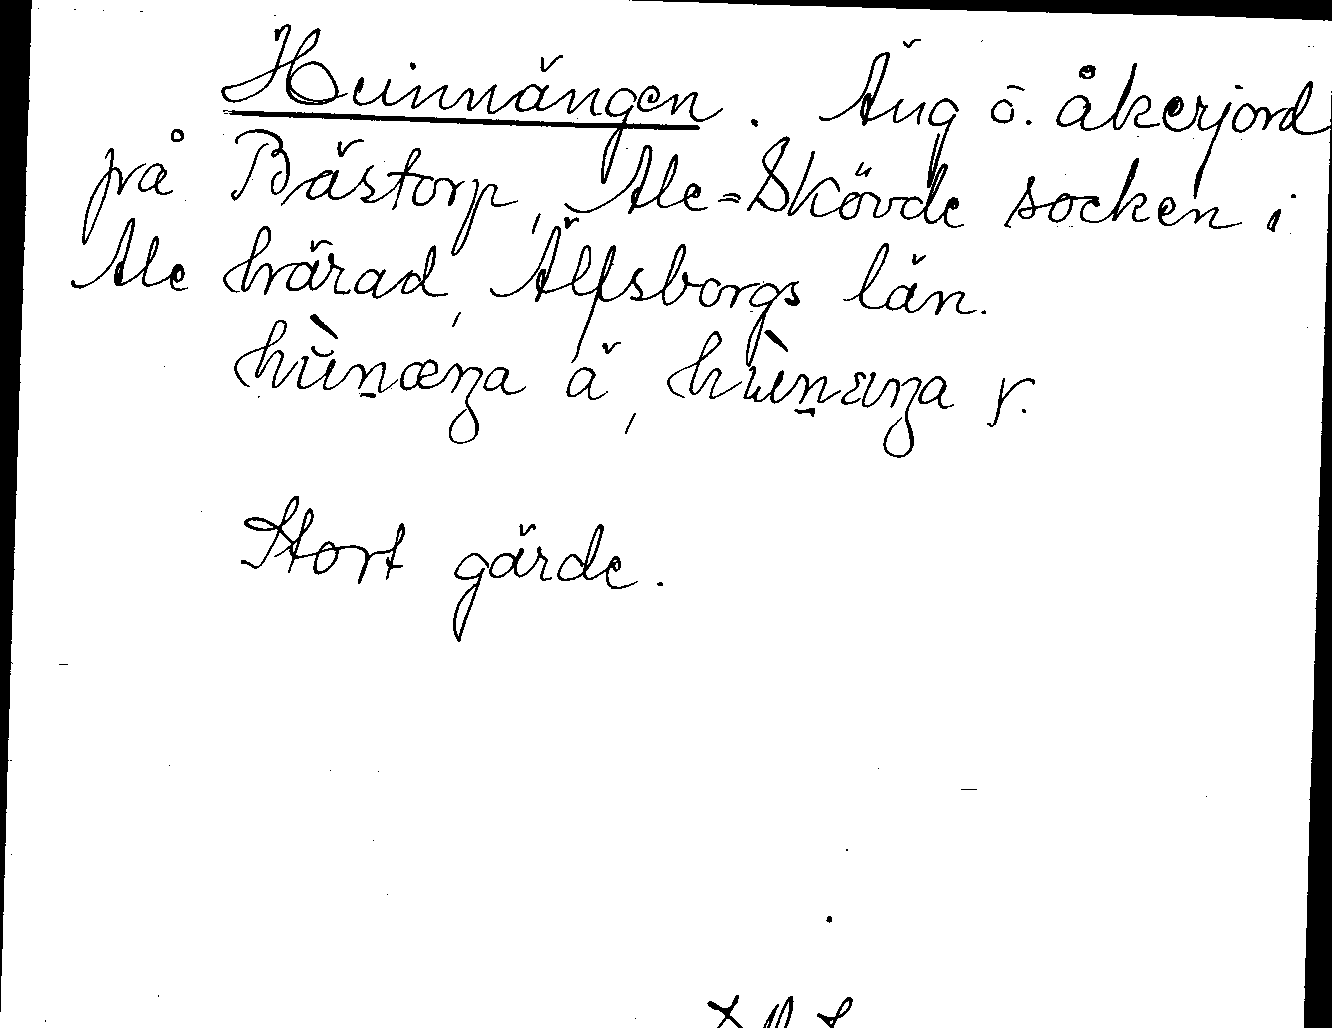 Huinnängen. Äng o. åkerjord
på Bästorp, Ale-Skövde socken i
Ale härad, Älfsborgs län.
ä, r.
Stort gärde.